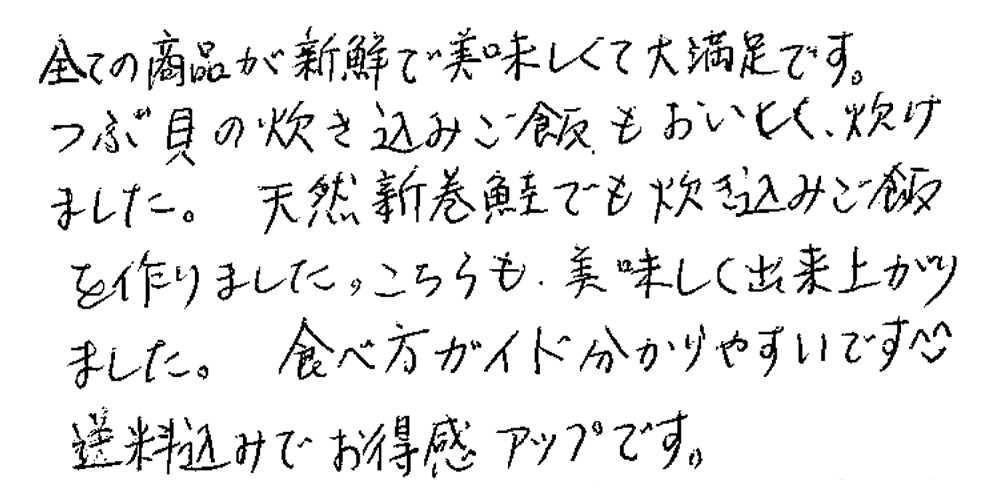 全ての商品が新鮮で美味しくて大満足です。
つぶ貝の炊き込みご飯もおいしく、炊け
ました。 天然新巻鮭でも炊き込みご飯
を作りました。こちらも、美味しく出来上がり
ました。 食べ方ガイド分かりやすいです^^
送料込みでお得感アップです。